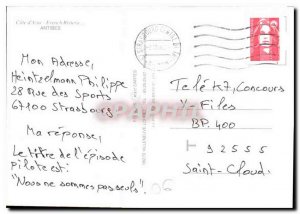 Côte d'Azur - French Riviera
ANTIBES
Mon Adresse,
Heintzelmann Philippe
28 Rue des Sports
67100 Strasbourg
Ma réponse,
Le titre de l'épisode
pilote est:
"Nous ne sommes pas seuls".
06
Télé K7, Concours
X-Files
BP. 400
92555
Saint-Cloud